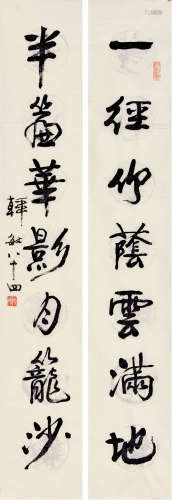 一径竹蔭雲滿地
半簾華影月籠沙
韓敏八十四